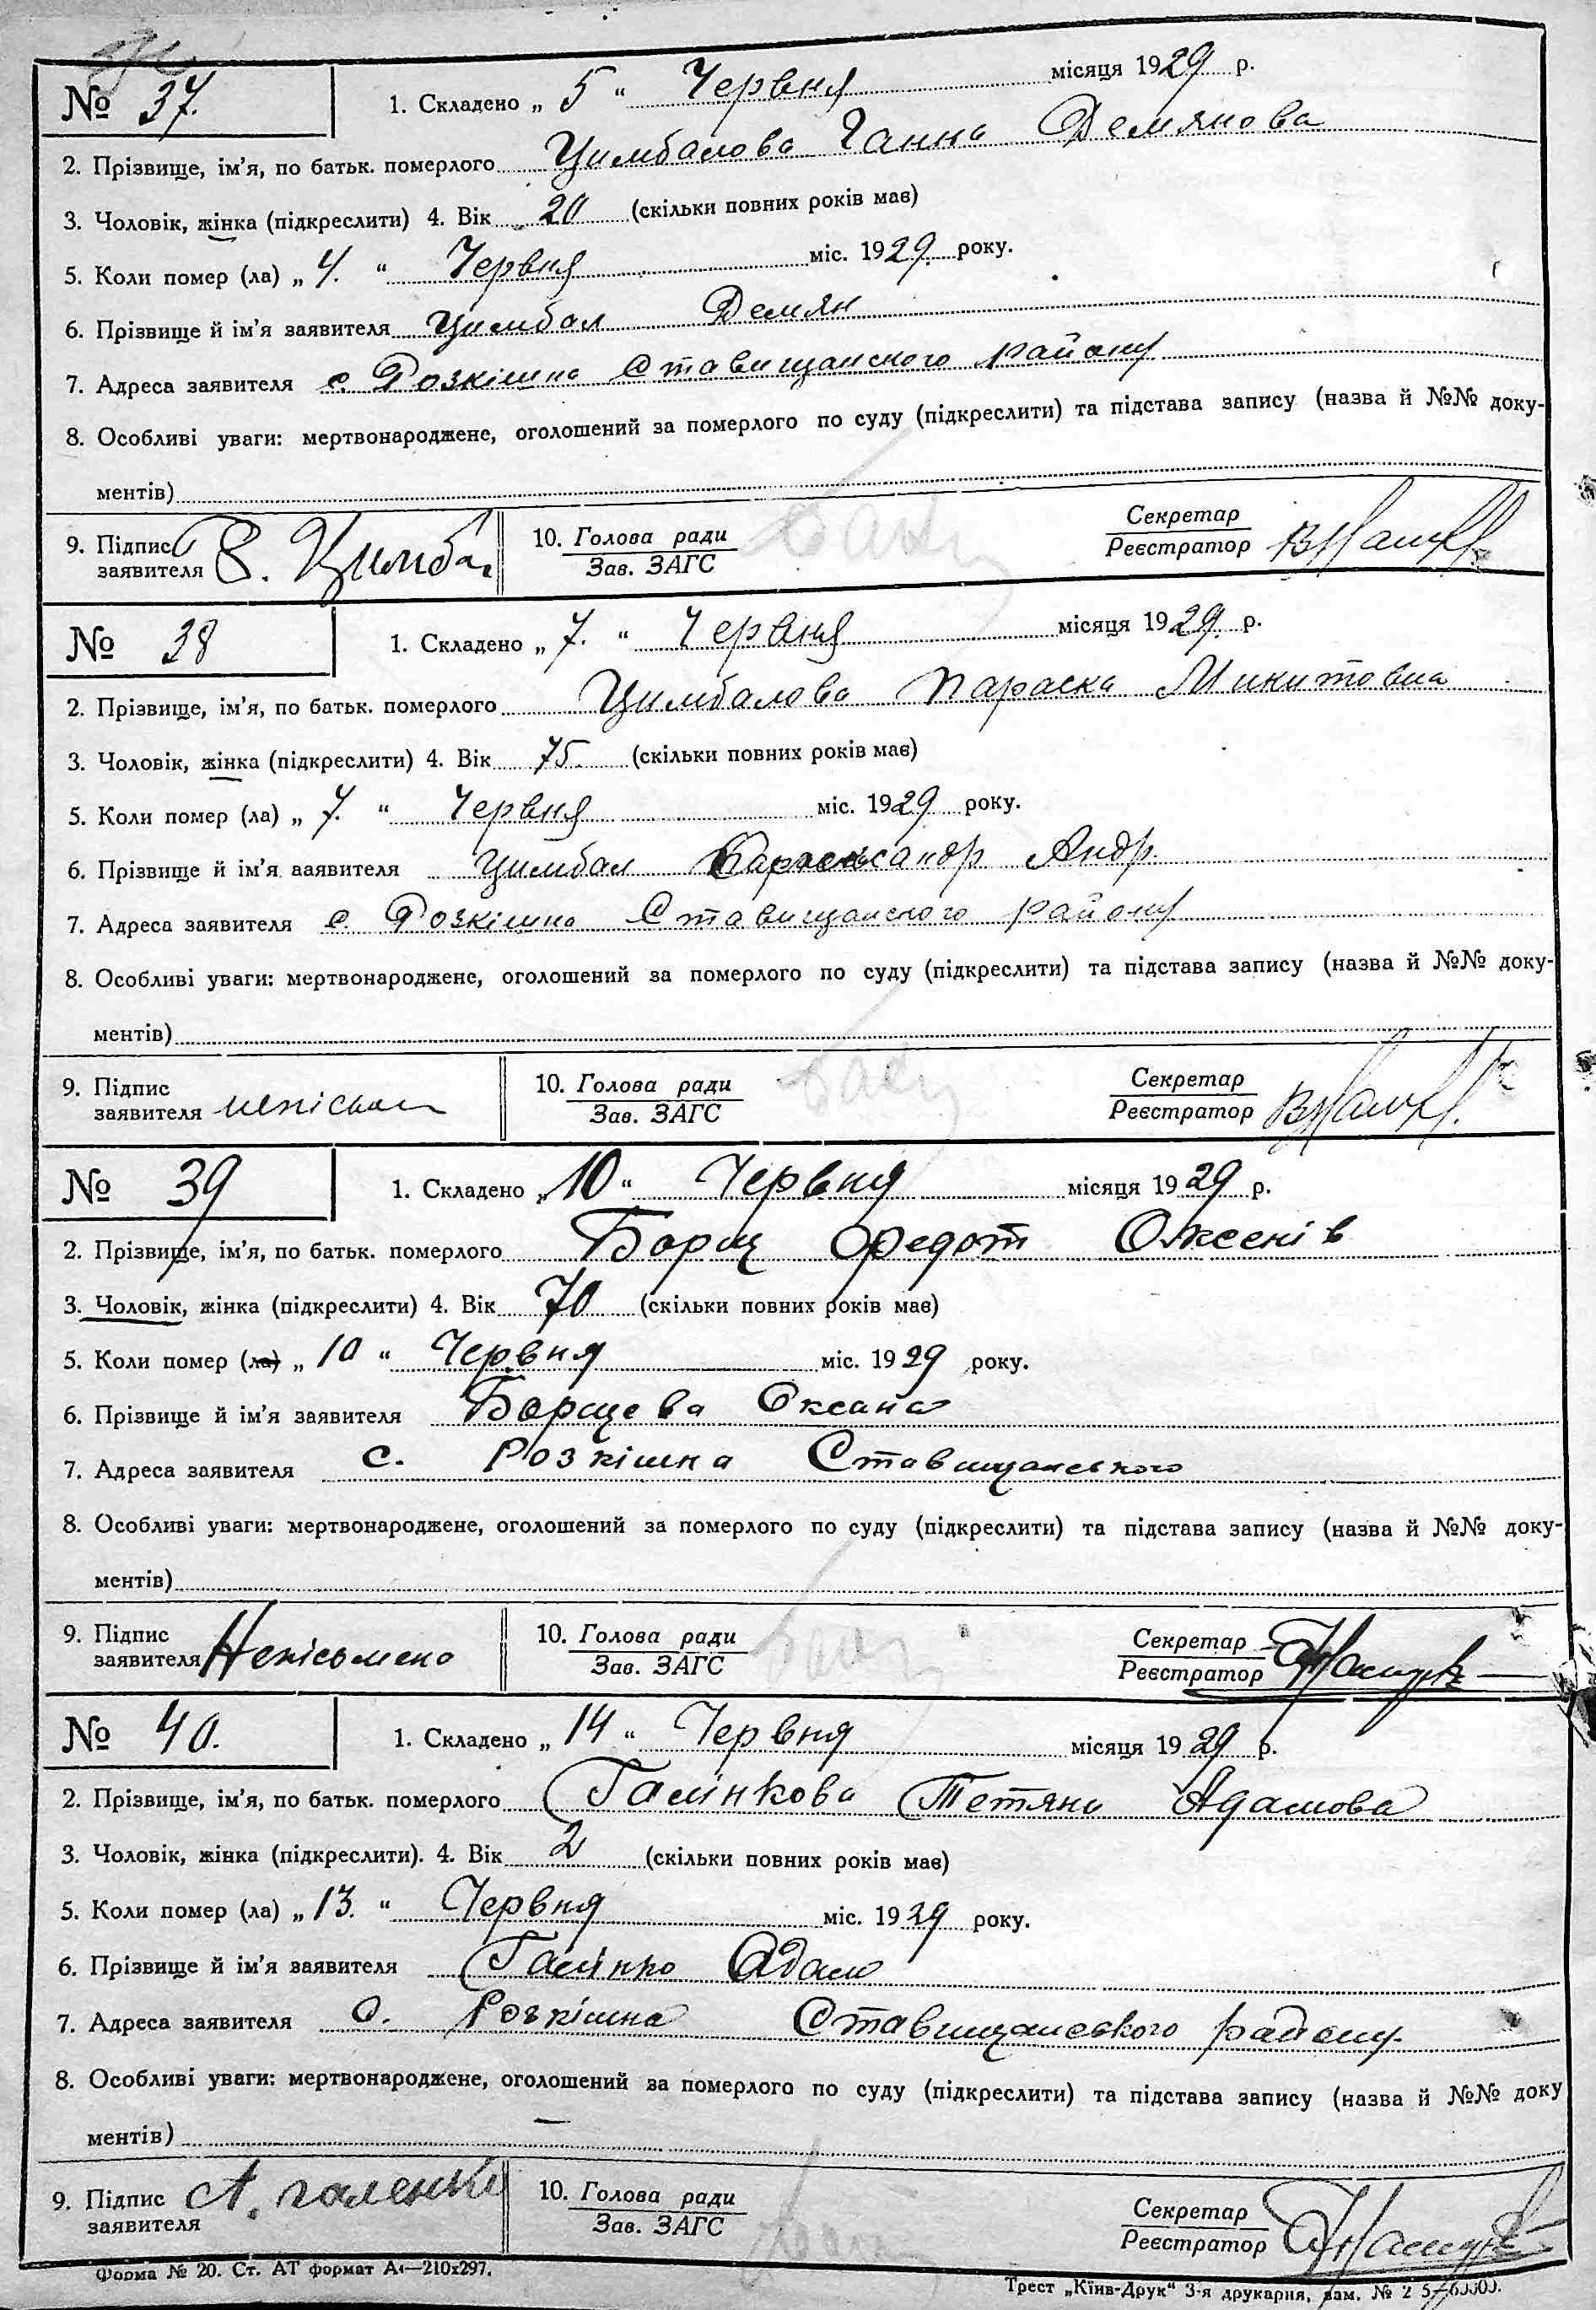 № 37.
1. Складено „ 5 “ Червня місяця 1929 р.
2. Прізвище, ім'я, по батьк. померлого Цимбалова Ганна Демянова
3. Чоловік, жінка (підкреслити) 4. Вік 20 (скільки повних років має)
5. Коли помер (ла) „ 4. “ Червня міс. 1929. року.
6. Прізвище й ім'я заявителя Цимбал Демян
7. Адреса заявителя с. Розкішна Ставищанского району
8. Особливі уваги: мертвонароджене, оголошений за померлого по суду (підкреслити) та підстава запису (назва й №№ доку-
ментів)
9. Підпис заявителя Цимбал
10. Голова ради
Зав. ЗАГС
Секретар
Реєстратор
№ 38
1. Складено „ 7. “ Червня місяця 1929 р.
2. Прізвище, ім'я, по батьк. померлого Цимбалова Параска Микитовна
3. Чоловік, жінка (підкреслити) 4. Вік 75. (скільки повних років має)
5. Коли помер (ла) „ 7. “ Червня міс. 1929 року.
6. Прізвище й ім'я заявителя Цимбал Андр.
7. Адреса заявителя с. Розкішна Ставищанского району
8. Особливі уваги: мертвонароджене, оголошений за померлого по суду (підкреслити) та підстава запису (назва й №№ доку-
ментів)
9. Підпис заявителя
10. Голова ради
Зав. ЗАГС
Секретар
Реєстратор
№ 39
1. Складено „ 10 “ Червня місяця 1929 р.
2. Прізвище, ім'я, по батьк. померлого Борщ Федот Оксенів
3. Чоловік, жінка (підкреслити) 4. Вік 70 (скільки повних років має)
5. Коли помер (ла) „ 10 “ Червня міс. 1929 року.
6. Прізвище й ім'я заявителя Борщева Оксана
7. Адреса заявителя с. Розкішна Ставищанського
8. Особливі уваги: мертвонароджене, оголошений за померлого по суду (підкреслити) та підстава запису (назва й №№ доку-
ментів)
9. Підпис заявителя Непісьмена
10. Голова ради
Зав. ЗАГС
Секретар
Реєстратор
№ 40.
1. Складено „ 14 “ Червня місяця 1929 р.
2. Прізвище, ім'я, по батьк. померлого Галінкова Тетяна Адамова
3. Чоловік, жінка (підкреслити). 4. Вік 2 (скільки повних років має)
5. Коли помер (ла) „ 13. “ Червня міс. 1929 року.
6. Прізвище й ім'я заявителя Галінко Адам
7. Адреса заявителя с. Розкішна Ставищанського району.
8. Особливі уваги: мертвонароджене, оголошений за померлого по суду (підкреслити) та підстава запису (назва й №№ доку
ментів) —
9. Підпис заявителя А. галенко
10. Голова ради
Зав. ЗАГС
Секретар
Реєстратор
Форма № 20. Ст. АТ формат А4—210х297.
Трест „Київ-Друк“ 3-я друкарня, зам. №